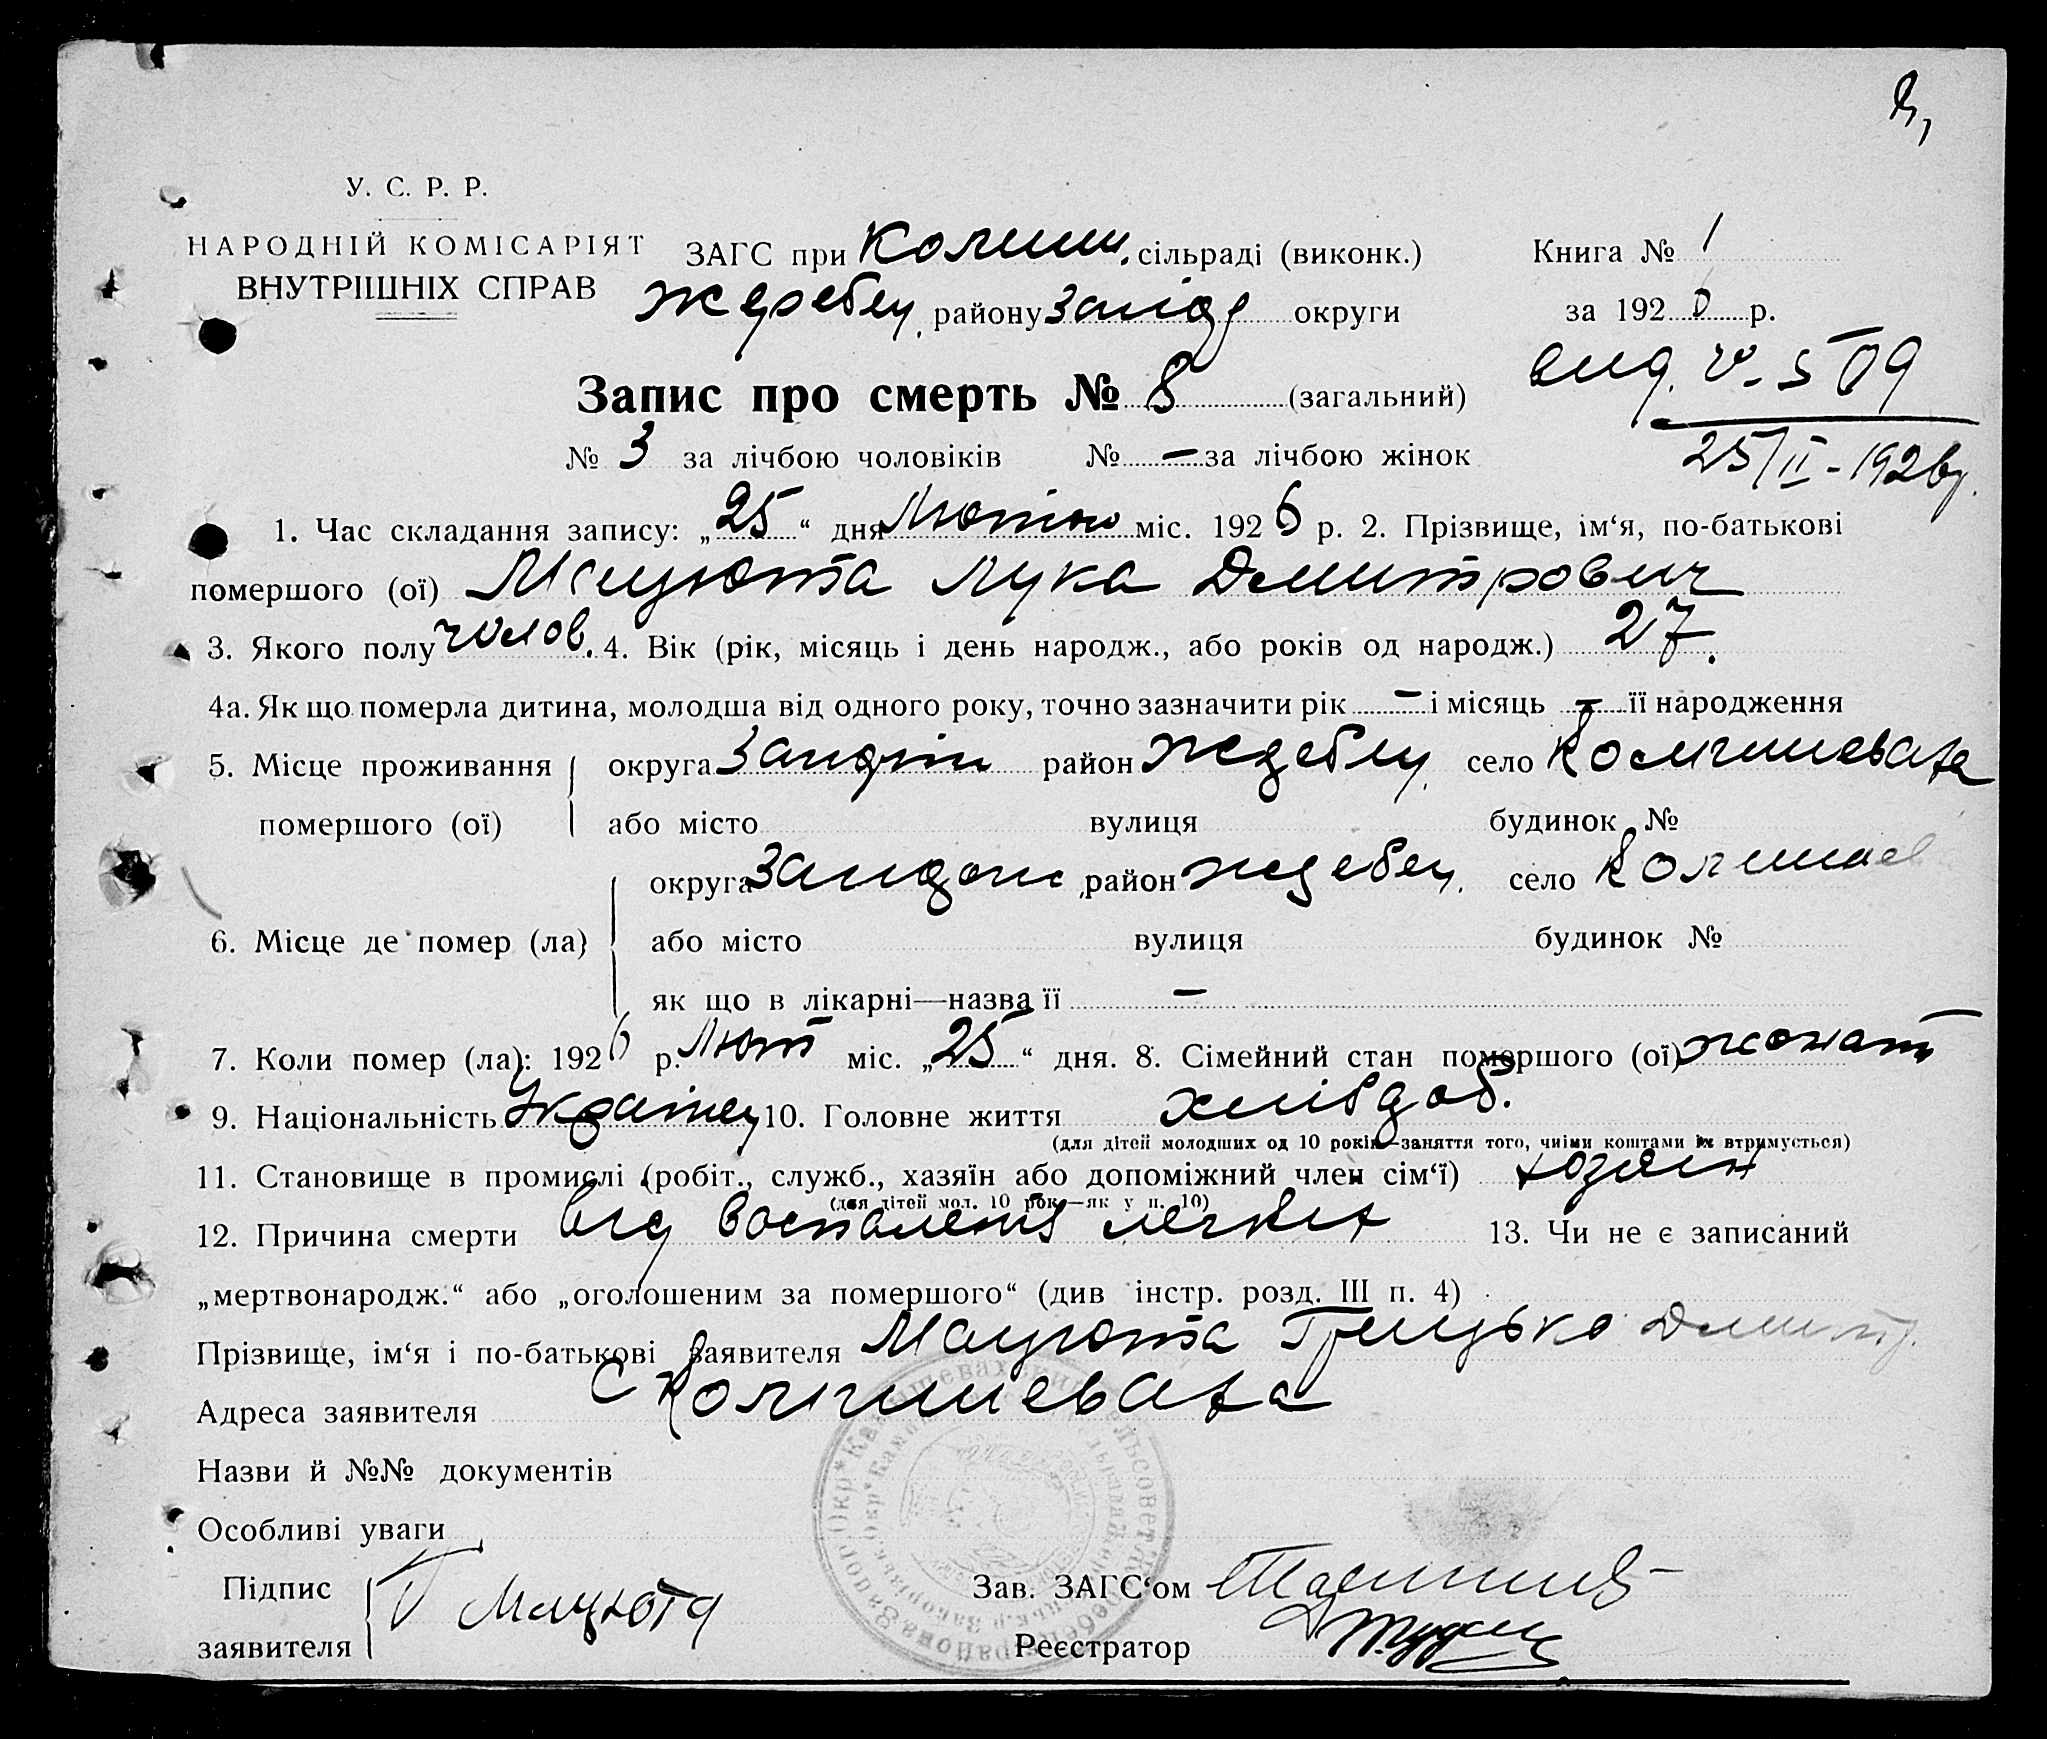 У. С. Р. Р.
НАРОДНІЙ КОМІСАРІЯТ
ВНУТРІШНІХ СПРАВ
ЗАГС при Комиш. сільраді (виконк.)
Жеребец. району Запор округи
Книга № 1
за 1926 р.
вид. 509
25/II-1926 р.
Запис про смерть № 8 (загальний)
№ 3 за лічбою чоловіків № — за лічбою жінок
1. Час складання запису: „25“ дня Лютого міс. 1926 р. 2. Прізвище, ім‘я, по-батькові
помершого (ої) Мацюта Лука Дмитрович
3. Якого полу чолов. 4. Вік (рік, місяць і день народж., або років од народж.) 27.
4а. Як що померла дитина, молодша від одного року, точно зазначити рік — і місяць — її народження
5. Місце проживання округа район Жеребец. село Комишеваха
помершого (ої) або місто вулиця будинок №
округа район Жеребец. село Комишев
6. Місце де помер (ла) або місто вулиця будинок №
як що в лікарні—назва її —
7. Коли помер (ла): 1926 р. Лют міс. „25“ дня. 8. Сімейний стан помершого (ої) жонат
9. Національність Українец 10. Головне життя хлібдоб.
(для дітей молодших од 10 років—заняття того, чиїми коштами їх втримується)
11. Становище в промислі (робіт., служб., хазяїн або допоміжний член сім‘ї) хозяин
(для дітей мол. 10 рок.—як у п. 10)
12. Причина смерти від воспаления легких 13. Чи не є записаний
„мертвонародж.“ або „оголошеним за помершого“ (див інстр. розд. III п. 4)
Прізвище, ім‘я і по-батькові заявителя Мацюта Грицько Дмитр.
Адреса заявителя с Комишеваха
Назви й №№ документів
Особливі уваги
Підпис
заявителя Г Мацюта
Зав. ЗАГС‘ом
Реєстратор